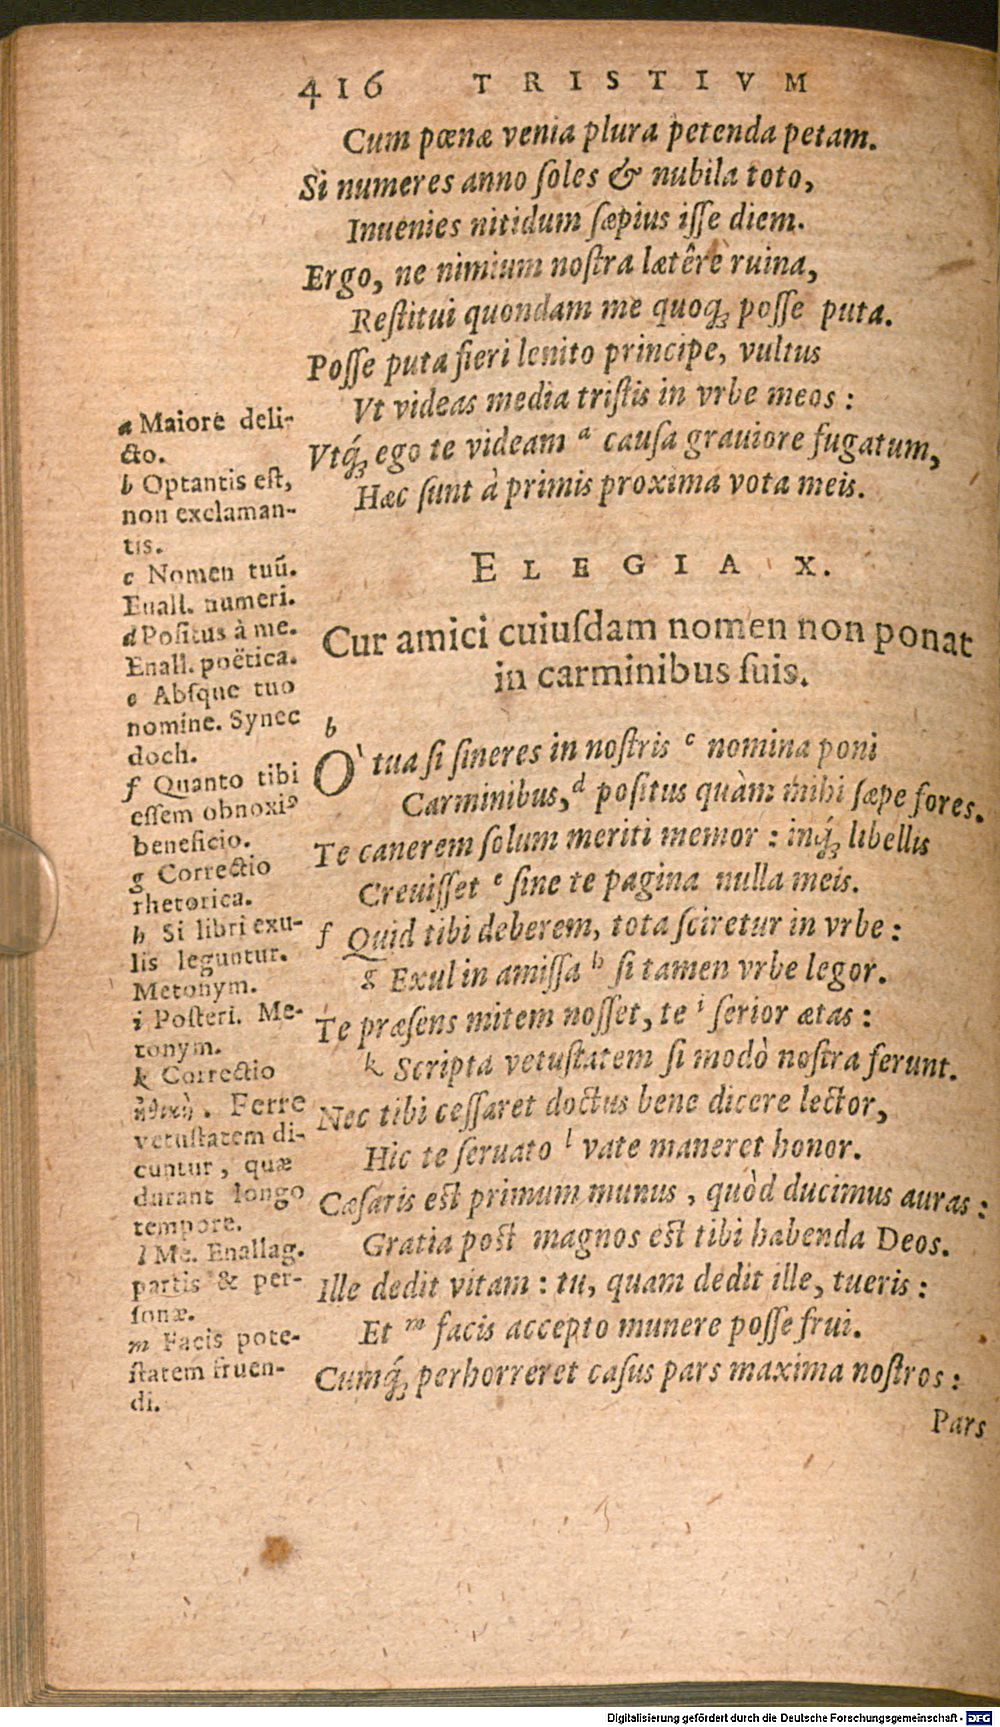 416 TRISTIVM
Cum pœnæ venia plura petenda petam.
Si numeres anno ſoles & nubila toto,
Inuenies nitidum ſæpius iſſe diem.
Ergo, ne nimium noſtra lætêre ruina,
Reſtitui quondam me quoq; poſſe puta.
Poſſe puta fieri lenito principe, vultus
Vt videas media triſtis in vrbe meos:
Vtq́; ego te videam a cauſa grauiore fugatum,
Hæc ſunt à primis proxima vota meis.
ELEGIA X.
Cur amici cuiuſdam nomen non ponat
in carminibus ſuis.
b
O' tua ſi ſineres in noſtris c nomina poni
Carminibus, d poſitus quàm mihi ſæpe fores.
Te canerem ſolum meriti memor: inq́; libellis
Creuiſſet e ſine te pagina nulla meis.
f Quid tibi deberem, tota ſciretur in vrbe:
g Exul in amiſſa h ſi tamen vrbe legor.
Te præſens mitem noſſet, te i ſerior ætas:
k Scripta vetuſtatem ſi modò noſtra ferunt.
Nec tibi ceſſaret doctus bene dicere lector,
Hic te ſeruato l vate maneret honor.
Cæſaris eſt primum munus, quòd ducimus auras:
Gratia poſt magnos eſt tibi habenda Deos.
Ille dedit vitam: tu, quam dedit ille, tueris:
Et m facis accepto munere poſſe frui.
Cumq́; perhorreret caſus pars maxima noſtros:
Pars
a Maiore deli-
cto.
b Optantis eſt,
non exclaman-
tis.
c Nomen tuũ.
Enall. numeri.
d Poſitus à me.
Enall. poëtica.
e Abſque tuo
nomine. Synec
doch.
f Quanto tibi
eſſem obnoxiꝰ
beneficio.
g Correctio
rhetorica.
h Si libri exu-
lis leguntur.
Metonym.
i Poſteri. Me-
tonym.
k Correctio
ἠθικὴ. Ferre
vetuſtatem di-
cuntur, quæ
durant longo
tempore.
l Me. Enallag.
partis & per-
ſonæ.
m Facis pote-
ſtatem fruen-
di.
Digitalisierung gefördert durch die Deutsche Forschungsgemeinschaft - DFG